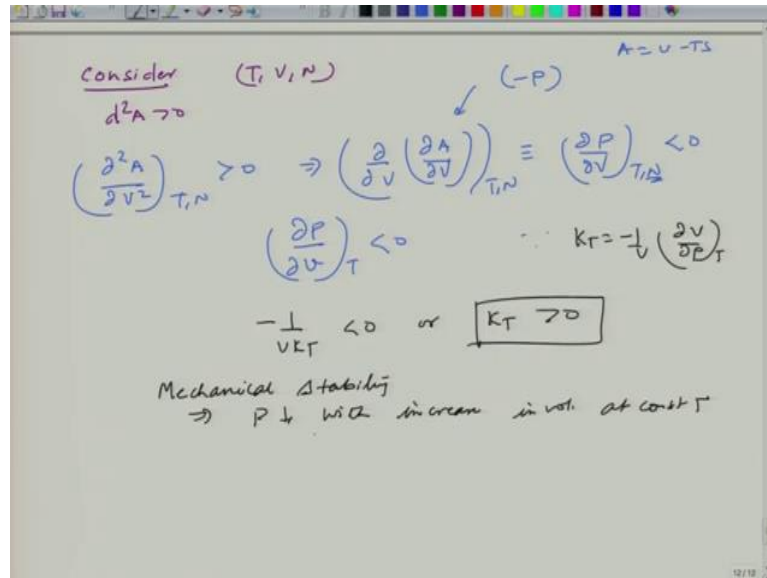 Consider (T, V, N) A = U - TS
d²A > 0 (-P)
(∂²A/∂V²)_{T,N} > 0 ⇒ (∂/∂V (∂A/∂V))_{T,N} ≡ (∂P/∂V)_{T,N} < 0
(∂P/∂v)_T < 0 ∵ K_T = -1/V (∂V/∂P)_T
-1/(VK_T) < 0 or K_T > 0
Mechanical Stability
⇒ P ↓ with increase in vol. at const T
12/12